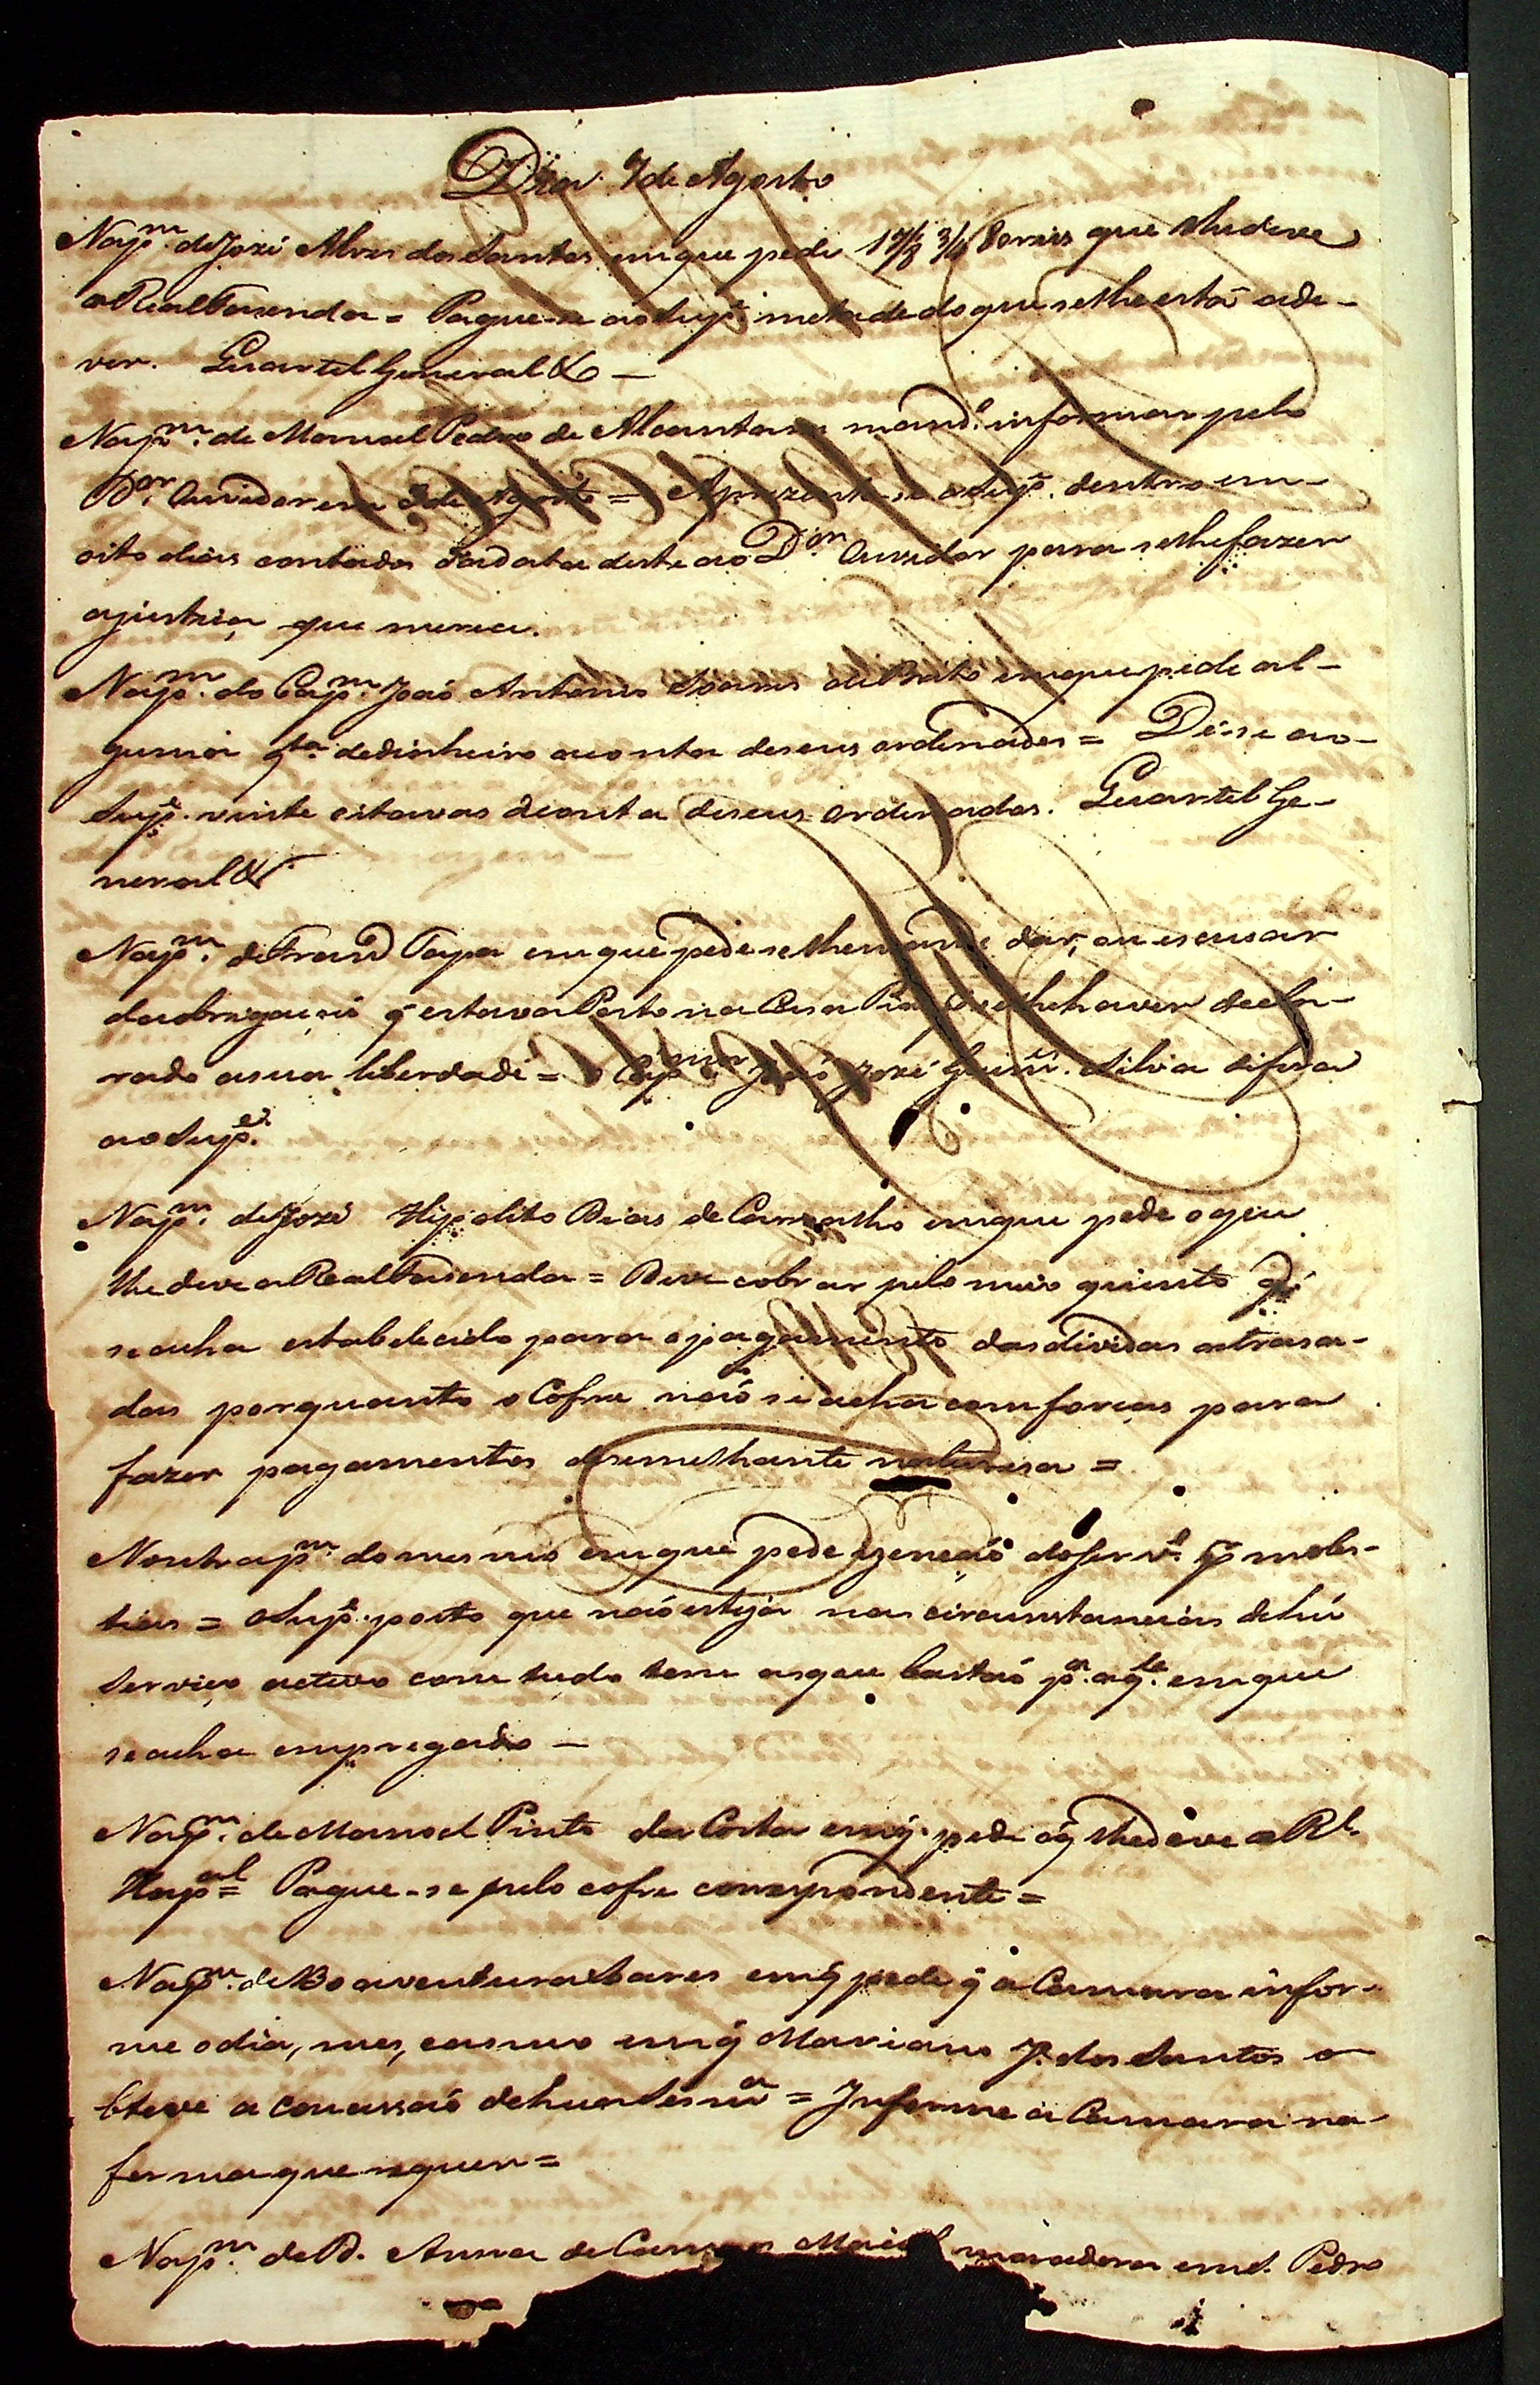 Dia 7 de Agosto
Na pm. de Jozé Alves dos Santos em que pede 17/8 3/4 8 o reis que lhe deve
a Real Fazenda = Pague-se ao Supe. metade do que se lhe está a de-
ver. Quartel General &
Na pm. de Manoel Pedro de Alcantara mando. informar pelo
Dor. Ouvidor em 3 de Agosto = Aprezente-se o Supe. dentro em
oito dias contados da data deste ao Dor. Ouvidor para se lhe fazer
a justiça que merece.
Na pm. do Capm. João Antonio Soares de Brito em que pede al-
guma qta. de dinheiro a conta de seus ordenados = Dê-se ao
Supe. vinte oitavas a conta de seus ordenados. Quartel Ge-
neral &
Na pm. de Frando Papa em que pede se lhe mande dar, ou escusar
da obrigação q estava Posto na Casa Pia de lhe haver decla-
rado a sua liberdade = O Capm mor João Jozé Guims. Silva difira
ao Supe.
Na pm. de Jozé Hipolito Dias de Carvalho em que pede o que
lhe deve a Real Fasenda = Deve cobrar pelo meio quinto q
se acha estabelecido para o pagamento das dividas atrasa-
das porquanto o Cofre não se acha com forças para
fazer pagamentos de semelhante naturesa =
Noutra pm. do mesmo em que pede izenção do servo. p moles-
tias = o Supe. posto que não esteja nas circunstancias de hú
Serviço activo com tudo tem as que bastão pa. aqle. em que
se acha empregado —
Na pm. de Manoel Pinto da Costa em q. pede o q lhe deve a Rl.
Hospal = Pague-se pelo cofre correspondente =
Na pm. de Boaventura Soares em q pede q a Camara infor-
me o dia, mes, e anno em q Mariano J. dos Santos o
bteve a concessão de hua Sesma = Informe a Camara na
forma que requer =
Na pm. de D. Anna de Campos Maciel moradora em S. Pedro